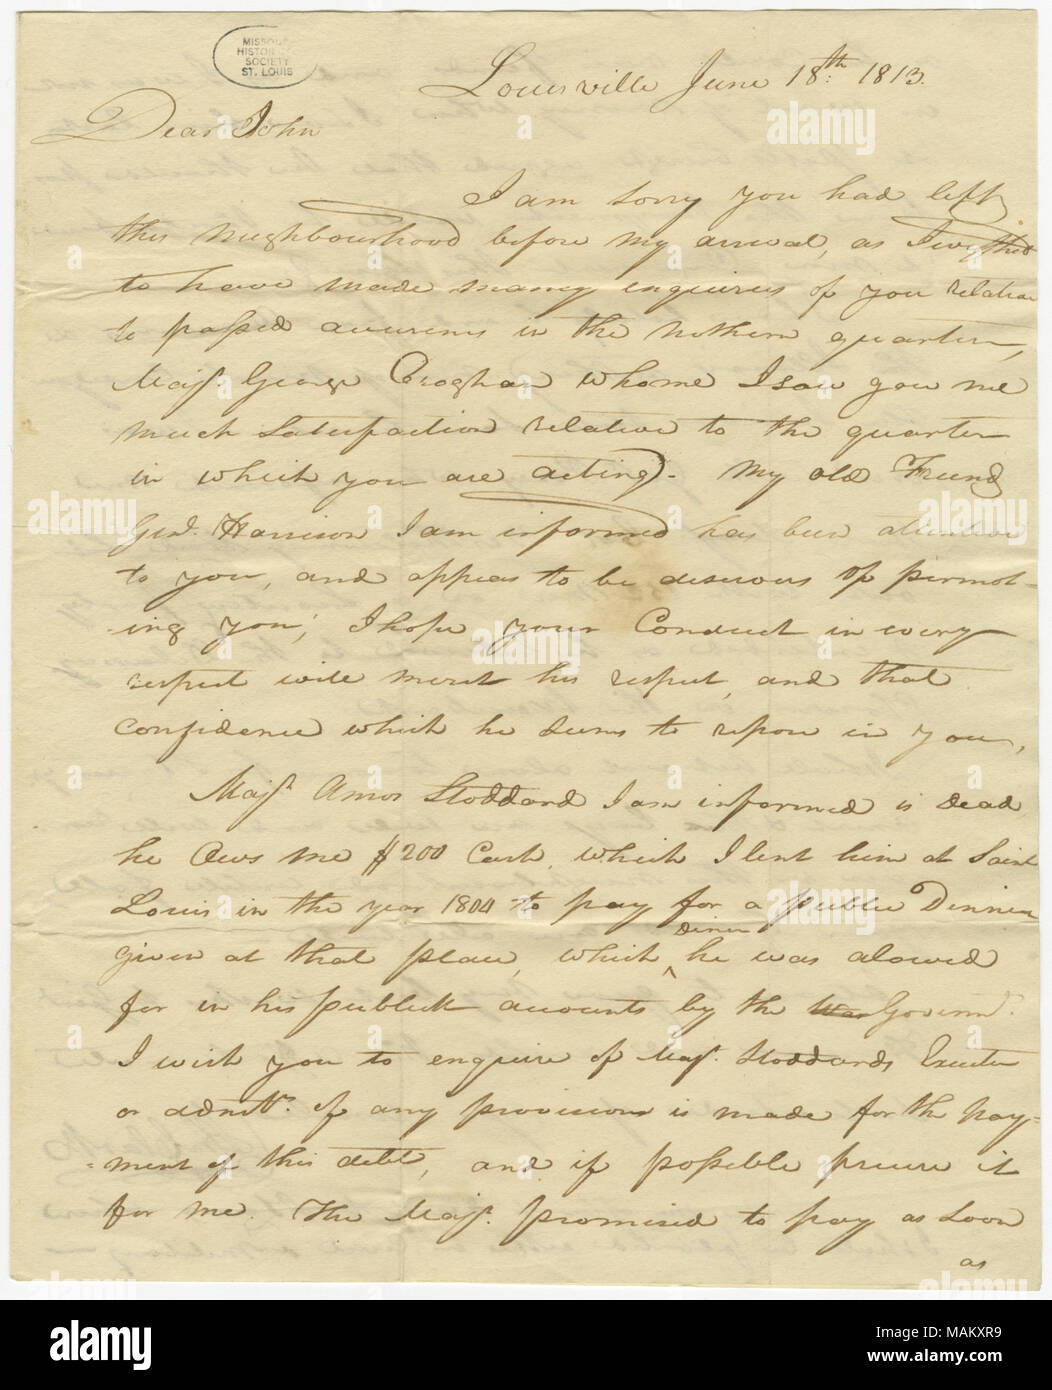 MISSOURI
HISTORICAL
SOCIETY
ST. LOUIS
Louisville June 18th: 1813.
Dear John
I am sorry you had left
this Neighbourhood before my arrival, as I wished
to have made many enquiries of you relative
to passed accurences in the Nothern quarter,
Majr. George Croghan whome I saw gave me
much Satisfaction relative to the quarter
in which you are acting. My old Friend
Genl. Harrison I am informed has been attentive
to you, and appears to be desirous of permot-
-ing you; I hope your Conduct in every
respect will merit his respect, and that
confidence which he seems to repose in you,
Majr. Amos Stoddard I am informed is dead
he Ows me $200 Cash, which I lent him at Saint
Louis in the year 1804 to pay for a publie Dinner
given at that place, which Dinner he was alowed
for in his publick accounts by the War Governmt.
I wish you to enquire of Majr. Stoddards Exutor
or admtr. if any provission is made for the pay=
=ment of this debt, and if posseble precure it
for me. The Majr. promised to pay as Soon
as
alamy
alamy
Image ID: MAKXR9
www.alamy.com